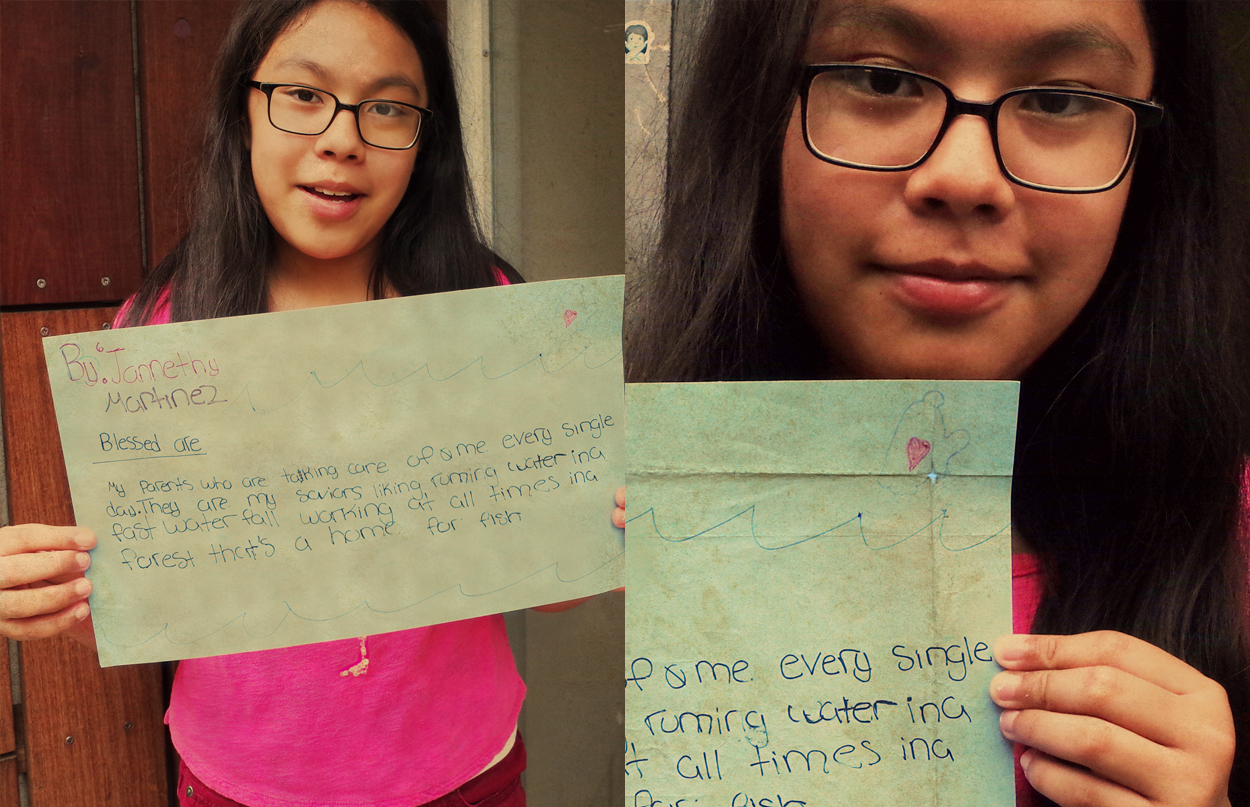 By: Jannethy
Martinez
Blessed are
My Parents who are talking care of ome every single
day. They are my saviors liking runing water ina
fast water fall working at all times ina
forest that's a home for fish
of ome every single
runing water ina
at all times ina
for fish